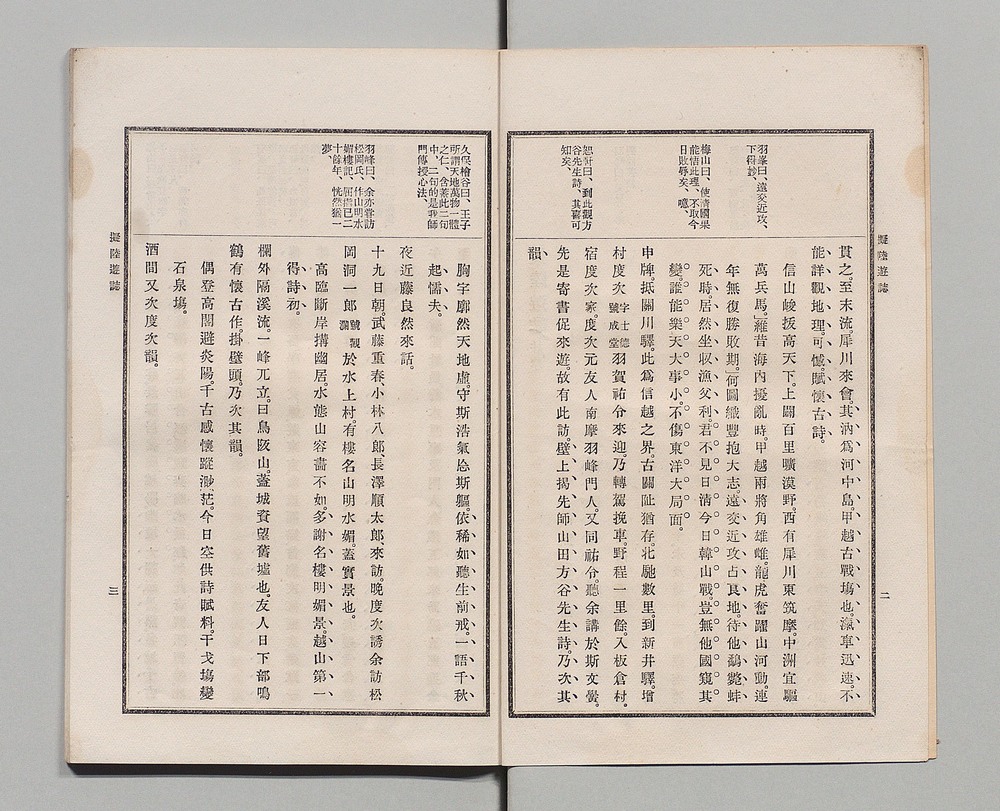 擬陸遊誌
二
羽峯曰、遠交近攻、
下得妙、
梅山曰、使淸國果
能悟此理、不取今
日敗辱矣、噫、
恕軒曰、到此觀方
谷先生詩、其喜可
知矣、
貫之。至末流。犀川來會。其汭爲河中島。甲越古戰塲也。滊車迅速。不
能詳觀地理。可憾。賦懷古詩。
信山峻拔高天下。上闢百里曠漠野。西有犀川東筑摩。中洲宜驅
萬兵馬。」維昔海內擾亂時。甲越兩將角雄雌。龍虎奮躍山河動。連
年無復勝敗期。」何圖織豐抱大志。遠交近攻占良地。待他鷸斃蚌
死時。居然坐收漁父利。君不見日淸今日韓山戰。豈無他國窺其
變。誰能樂天大事小。不傷東洋大局面。
申牌。抵關川驛。此爲信越之界。古關阯猶存。北馳數里。到新井驛。增
村度次 字士德 號成堂 羽賀祐令來迎。乃轉駕挽車。野程一里餘。入板倉村。
宿度次家。度次元友人南摩羽峰門人。又同祐令。聽余講於斯文黌。
先是寄書促來遊。故有此訪。壁上揭先師山田方谷先生詩。乃次其
韻。
久保檜谷曰、王子
所謂天地萬物一體
之仁、含蓄此二句
中、二句的是我師
門傳授心法、
羽峰曰、余亦嘗訪
松岡氏、作山明水
媚樓記、屈指已二
十餘年、恍然猶一
夢、
胸宇廓然天地虛。守斯浩氣捴斯軀。依稀如聽生前戒。一語千秋
起懦夫。
夜近藤良然來話。
十九日朝。武藤重春、小林八郎、長澤順太郎、來訪。晚度次誘余訪松
岡洞一郎 號觀瀾 於水上村。有樓名山明水媚。蓋實景也。
高臨斷岸搆幽居。水態山容畵不如。多謝名樓明媚景。越山第一
得詩初。
欄外隔溪流。一峰兀立。曰鳥阪山。蓋城資望舊墟也。友人日下部鳴
鶴有懷古作。掛壁頭。乃次其韻。
偶登高閣避炎陽。千古感懷蹤渺茫。今日空供詩賦料。干戈塲變
石泉塲。
酒間又次度次韻。
擬陸遊誌
三